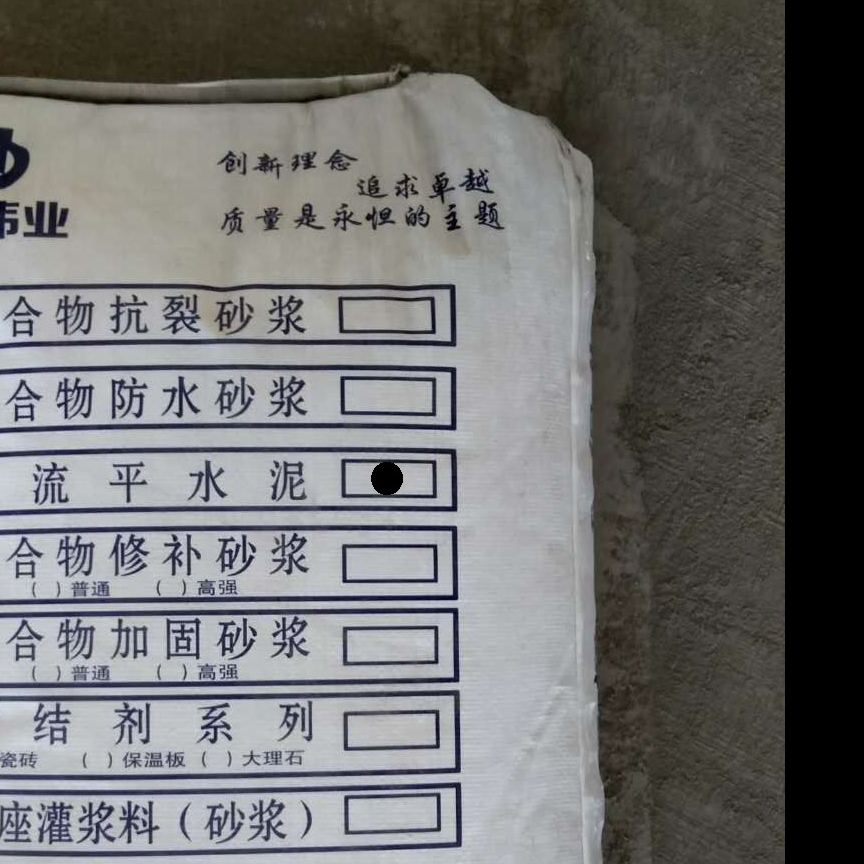 伟业
创新理念
追求卓越
质量是永恒的主题
合物抗裂砂浆
合物防水砂浆
流平水泥
合物修补砂浆
( )普通 ( )高强
合物加固砂浆
( )普通 ( )高强
结剂系列
瓷砖 ( )保温板 ( )大理石
座灌浆料(砂浆)